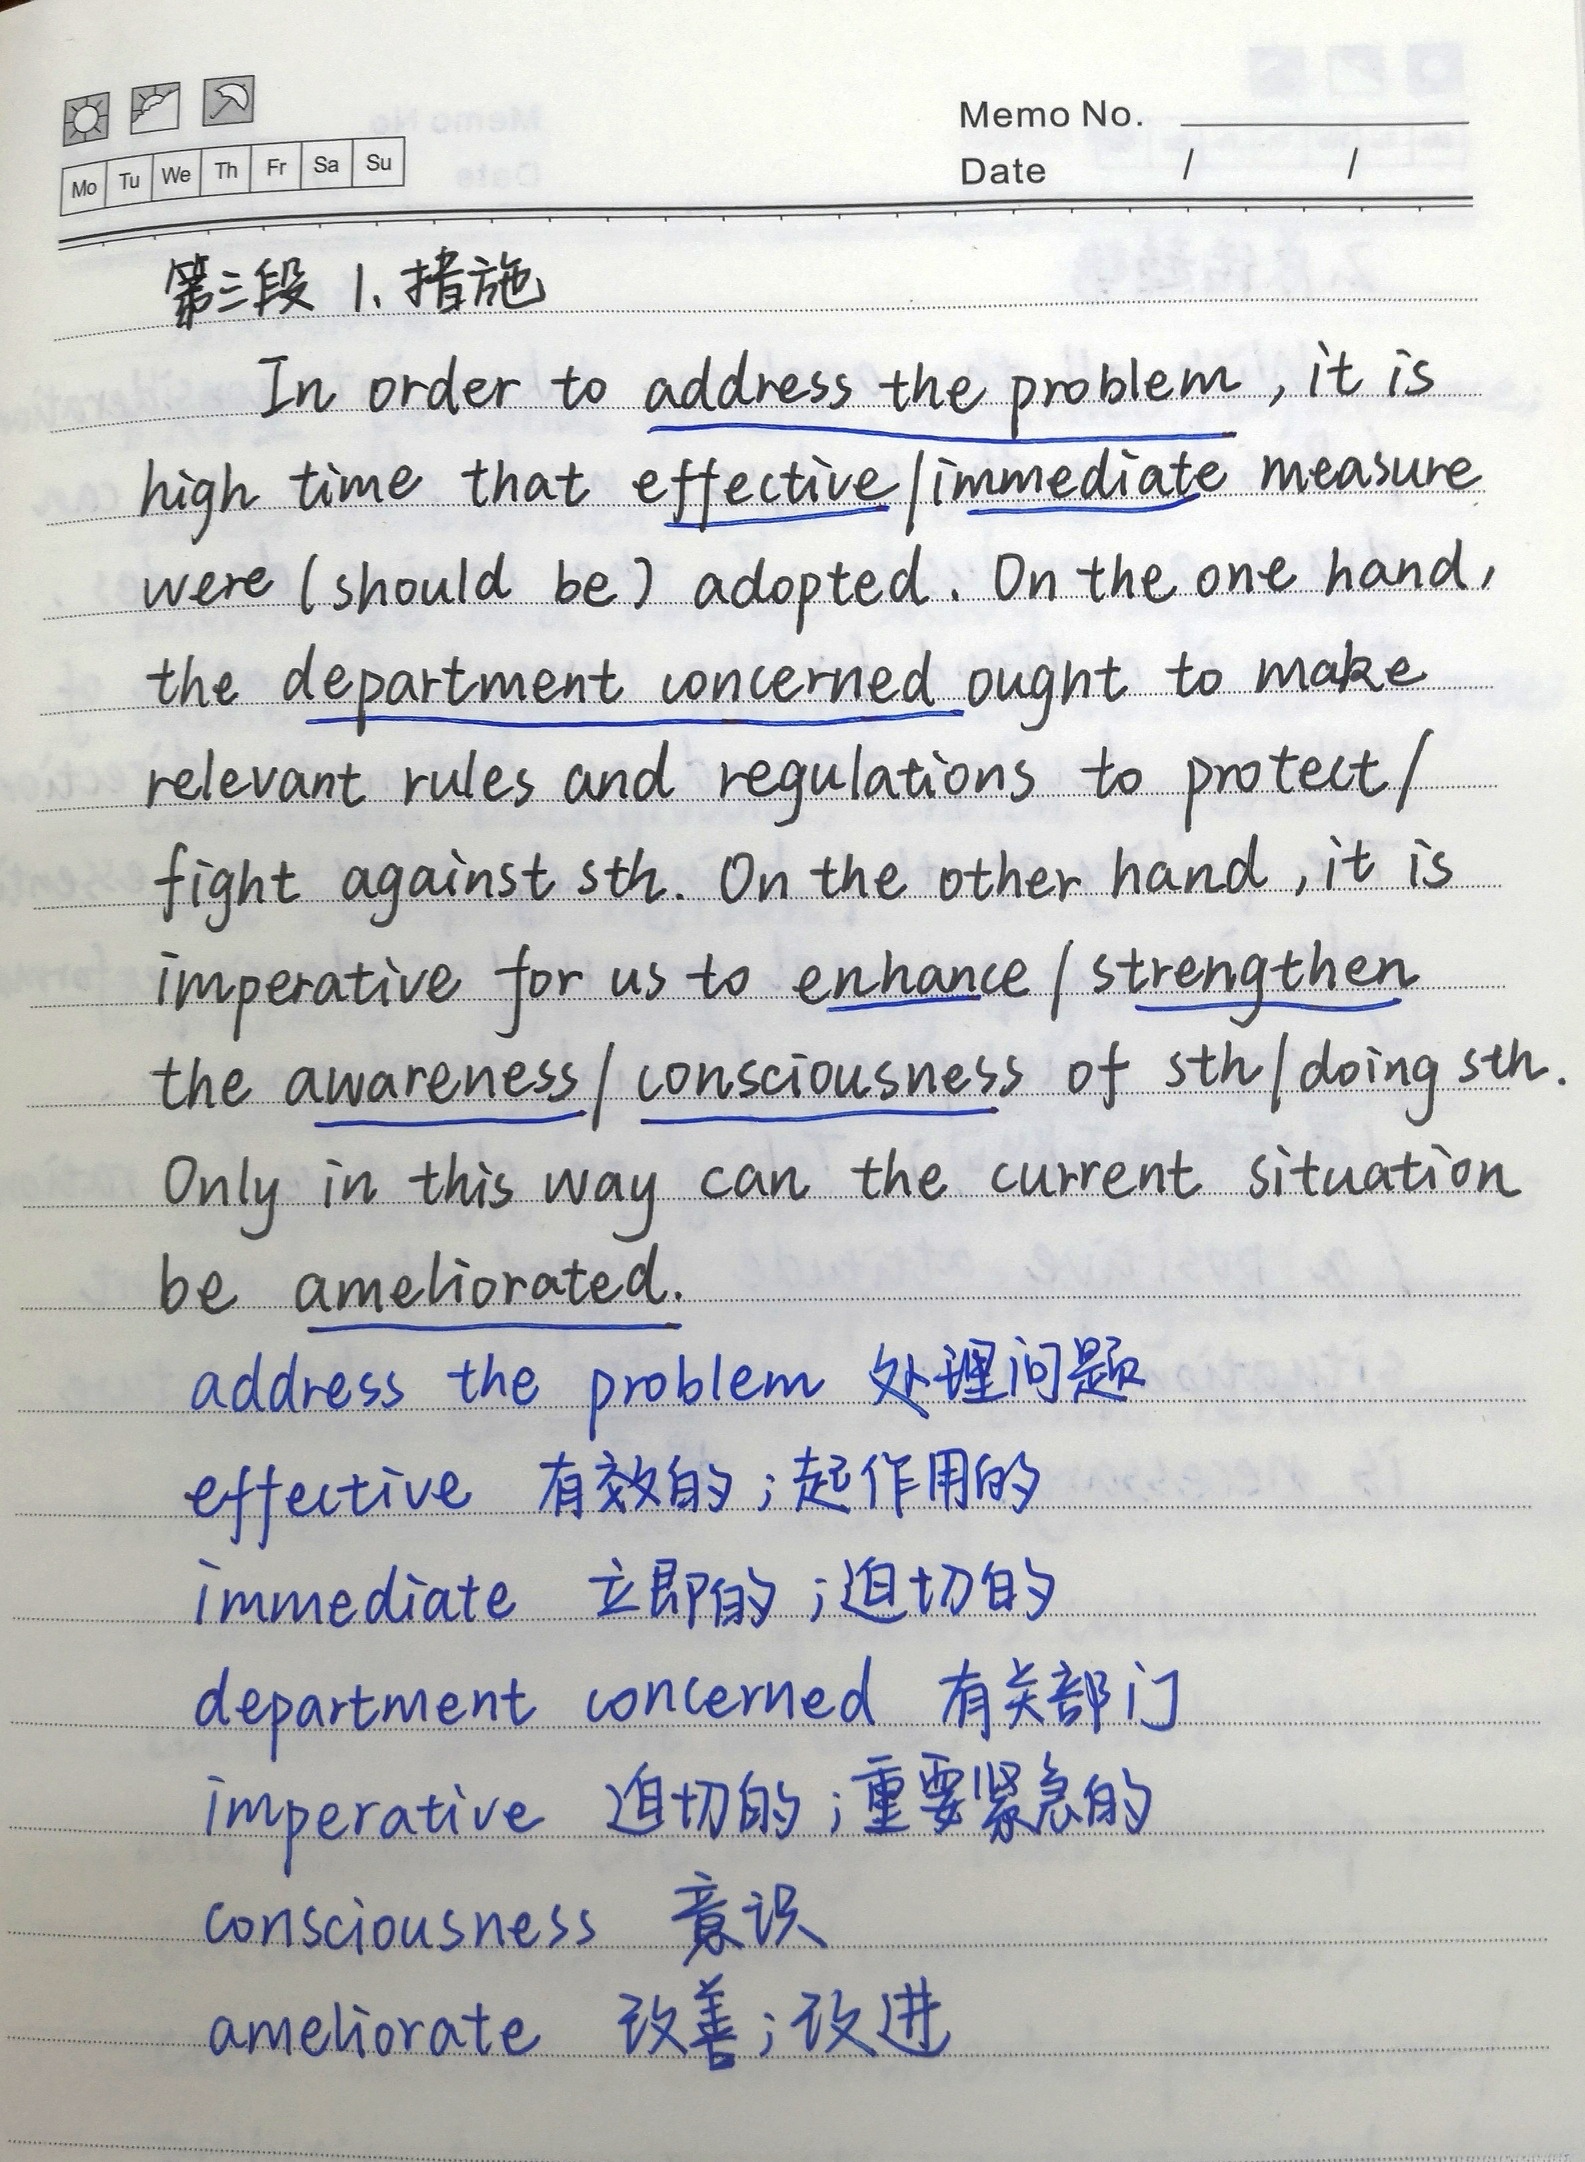 Memo No.
Date / /
Mo Tu We Th Fr Sa Su
第三段 1、措施
In order to address the problem, it is
high time that effective/immediate measure
were (should be) adopted. On the one hand,
the department concerned ought to make
relevant rules and regulations to protect/
fight against sth. On the other hand, it is
imperative for us to enhance/strengthen
the awareness/consciousness of sth/doing sth.
Only in this way can the current situation
be ameliorated.
address the problem 处理问题
effective 有效的;起作用的
immediate 立即的;迫切的
department concerned 有关部门
imperative 迫切的;重要紧急的
consciousness 意识
ameliorate 改善;改进